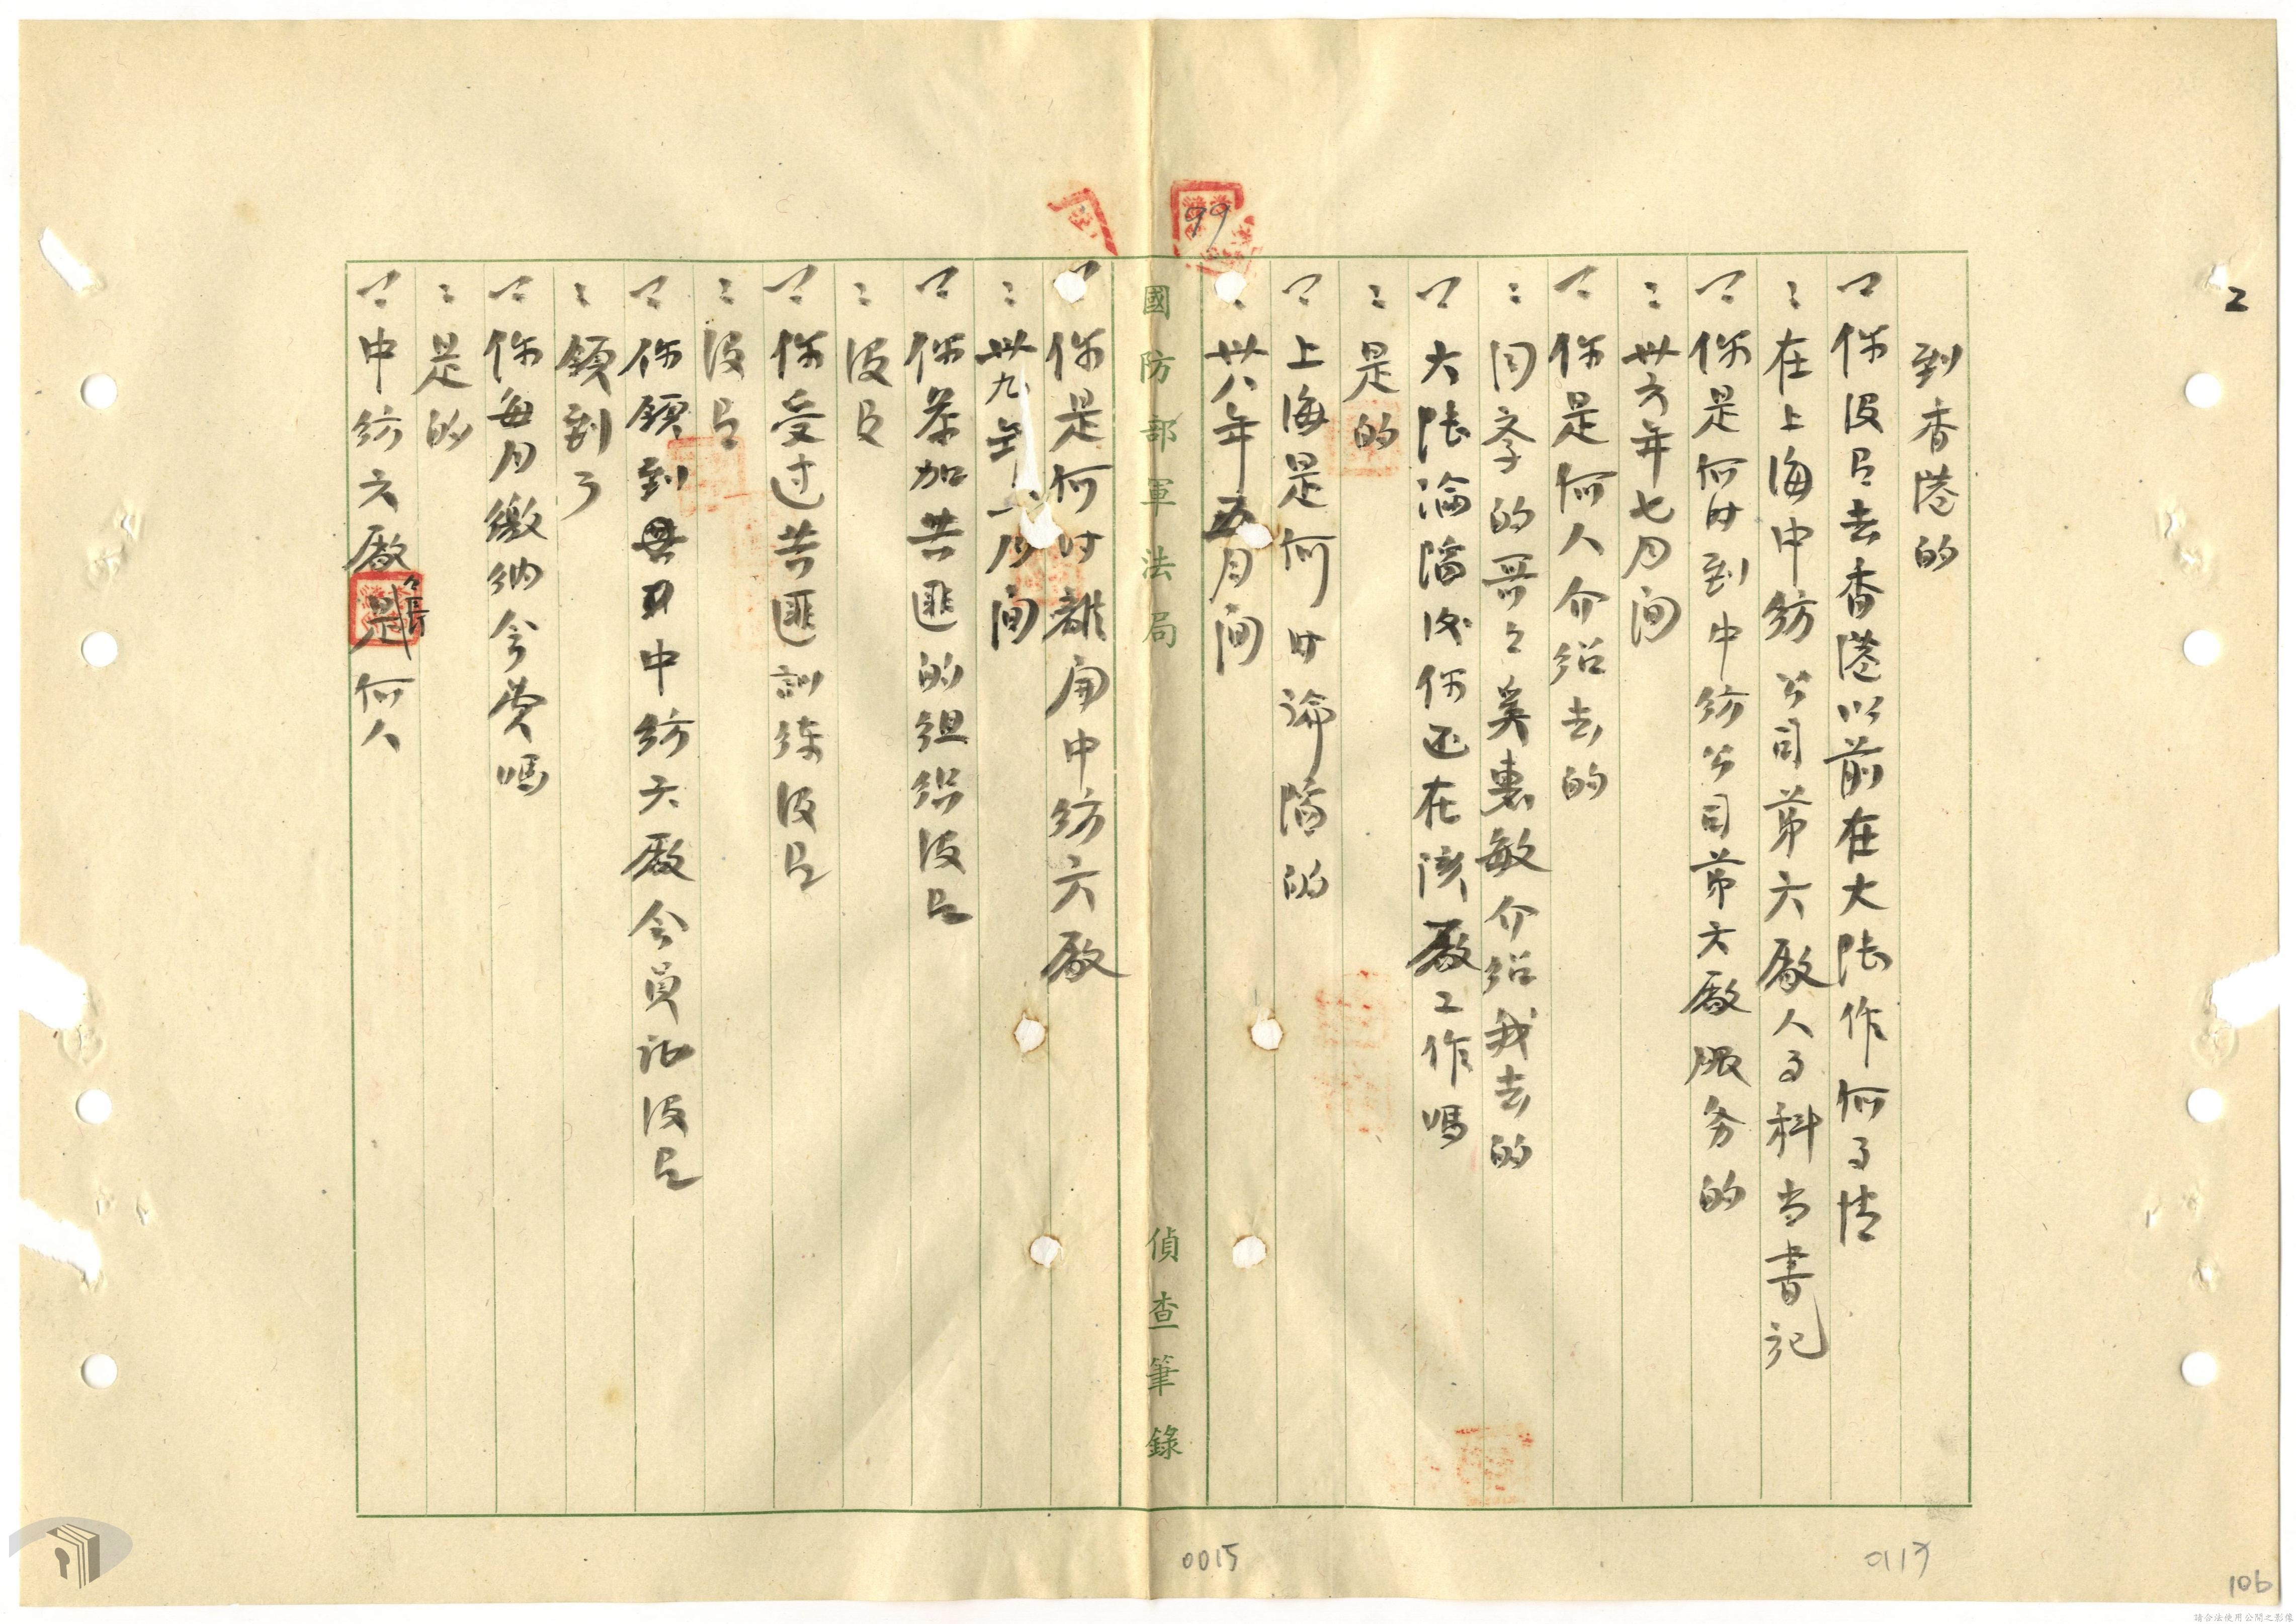 到香港的
問：你沒有去香港以前在大陸作何事情
：在上海中紡公司第六廠人事科当書記
問：你是何时到中紡公司第六廠服务的
：卅六年七月间
問：你是何人介绍去的
：同学的哥々奚惠敏介绍我去的
問：大陸淪陷後你还在該廠工作嗎
：是的
問：上海是何时淪陷的
：卅八年五月间
國防部軍法局 偵查筆錄
問：你是何时離開中紡六廠
：卅九年 月间
問：你参加共匪的组织没有
：没有
問：你受过共匪訓练没有
：没有
問：你領到中紡六廠会員证没有
：領到了
問：你每月繳纳会费嗎
：是的
問：中紡六廠々長是何人
99
2
0015
106
請合法使用公開之影像